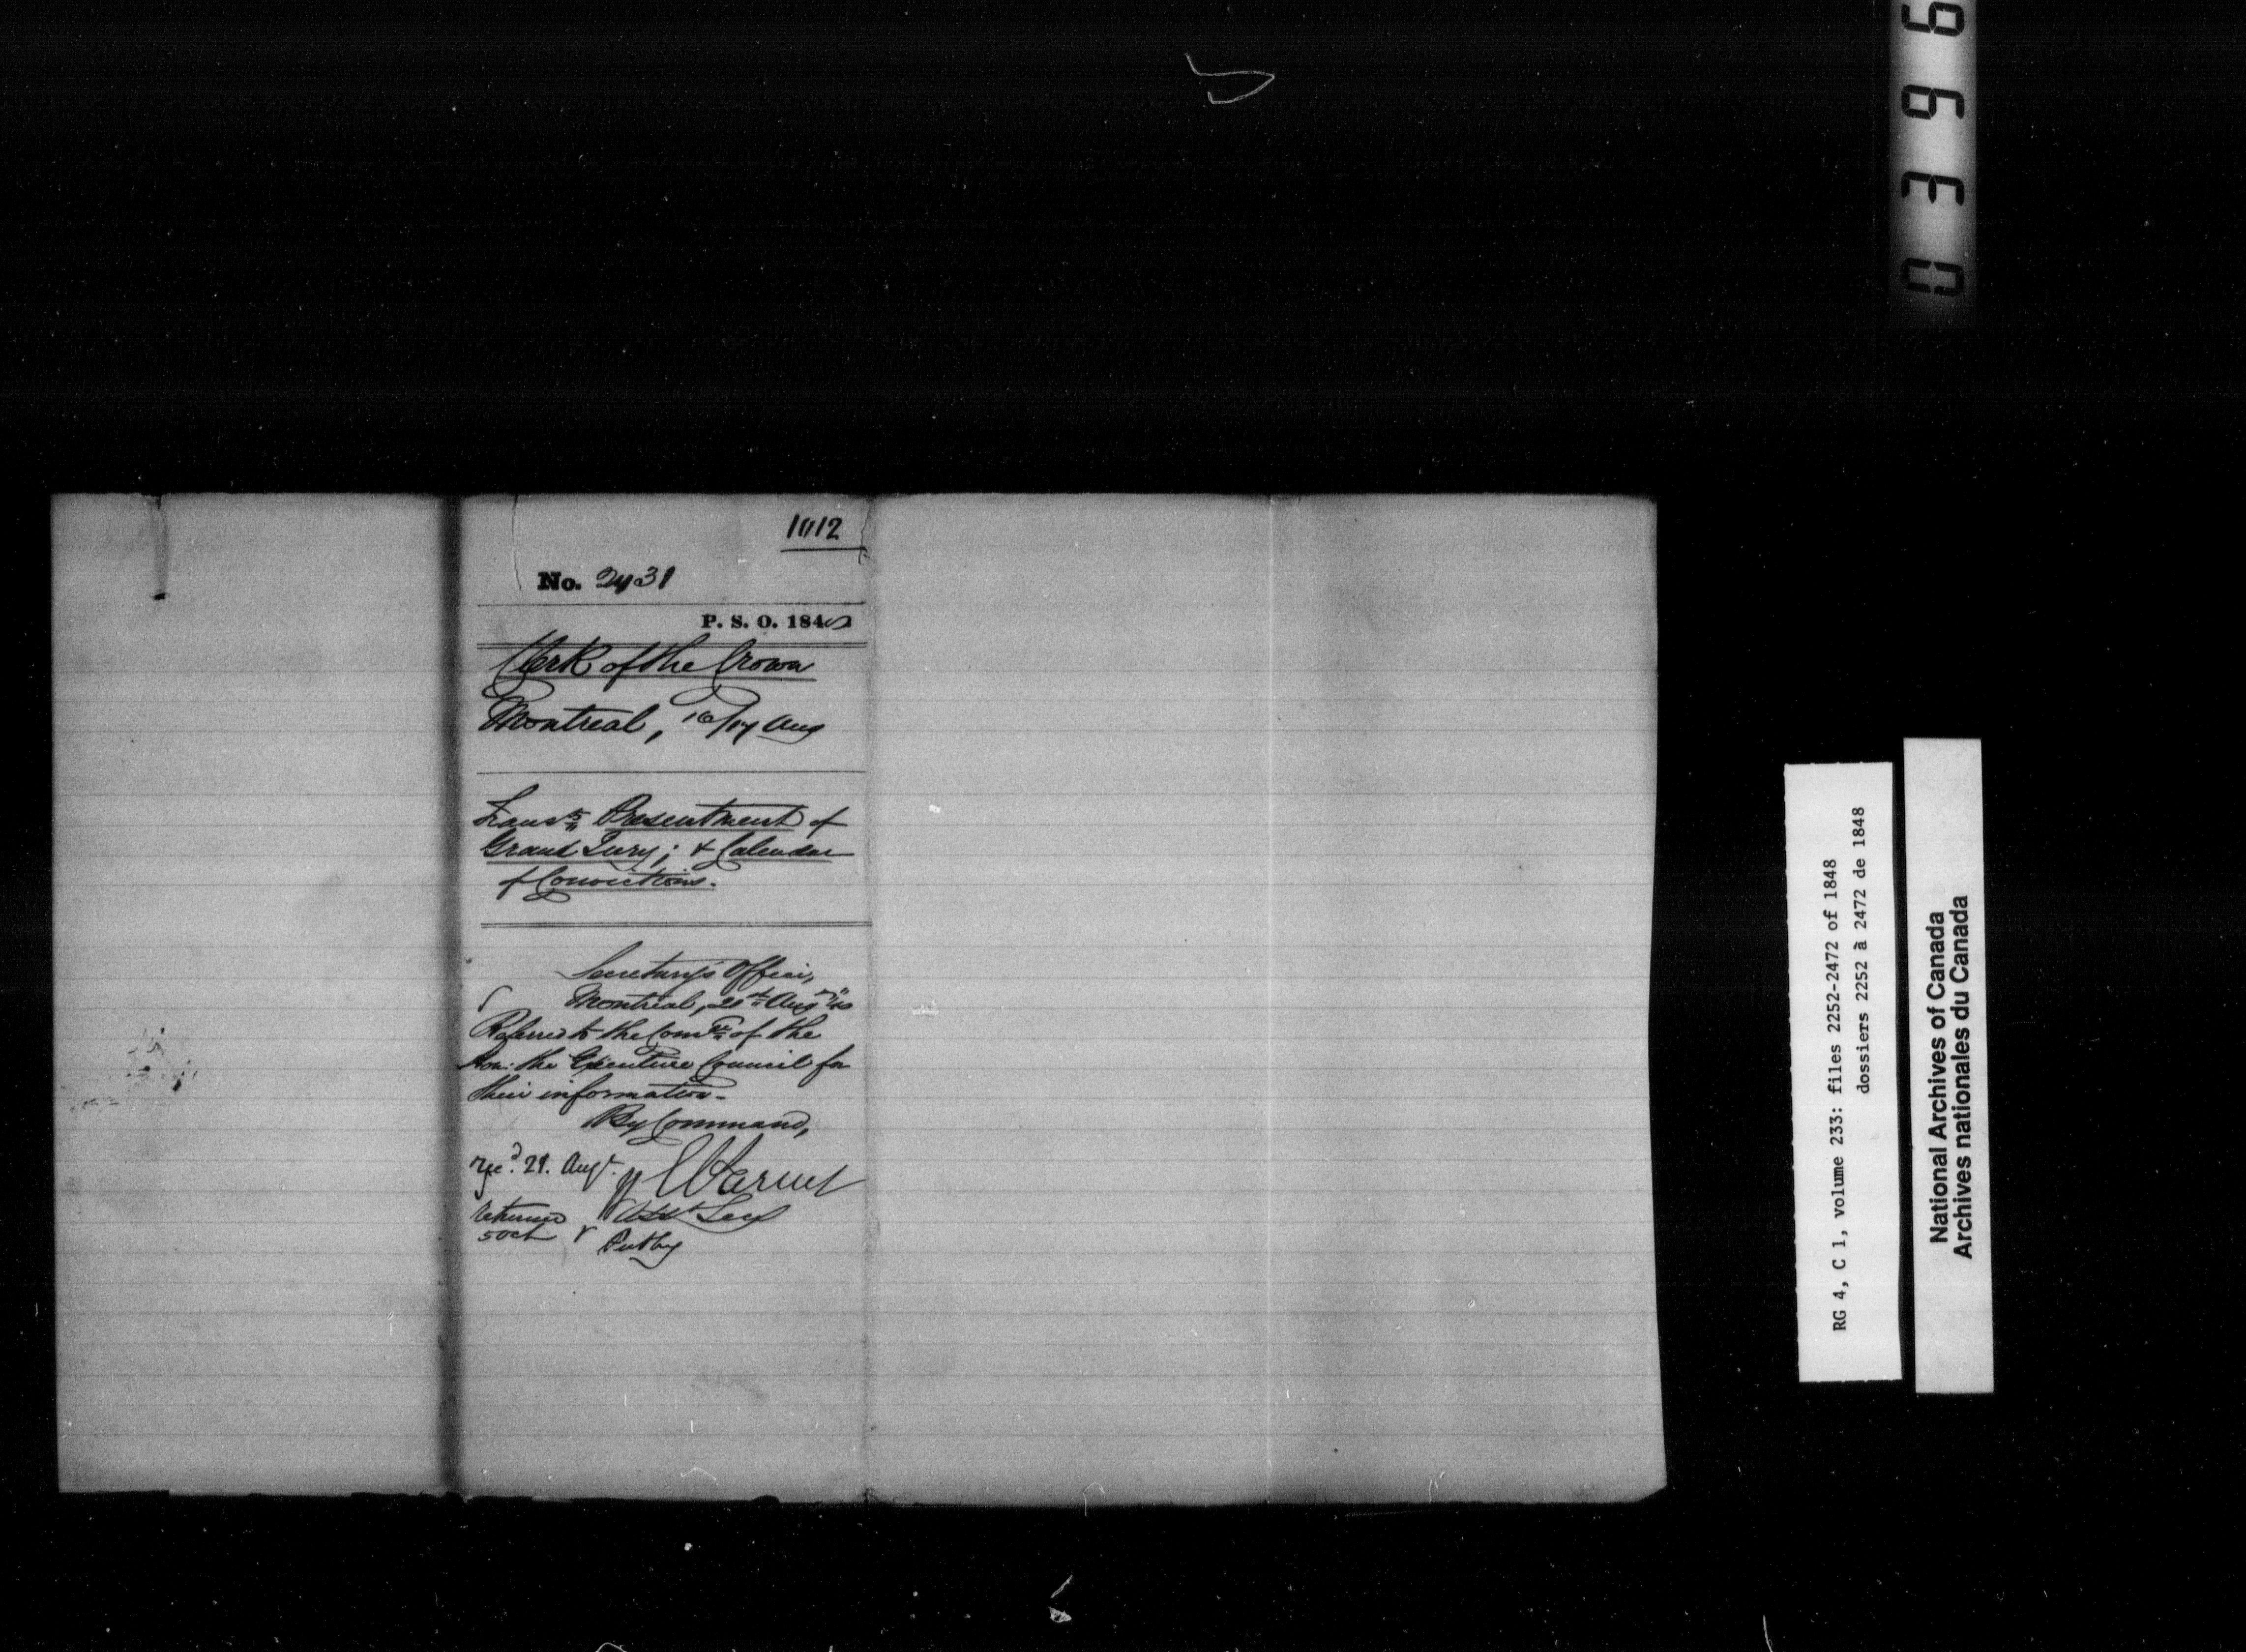 1012
No. 2431
P. S. O. 1848
Clerk of the Crown
Montreal, 16/17 Aug
Transtg Presentment of
Grand Jury; & Calendar
of Convictions.
Secretary's Office,
Montreal, 21st Aug
Referred to the Comtee of the
Hon: the Executive Council for
their information.
By Command,
Recd. 21. Augt.
Returned Asst Secy
5 Oct
0396
RG 4, C 1, volume 233: files 2252-2472 of 1848
dossiers 2252 à 2472 de 1848
National Archives of Canada
Archives nationales du Canada